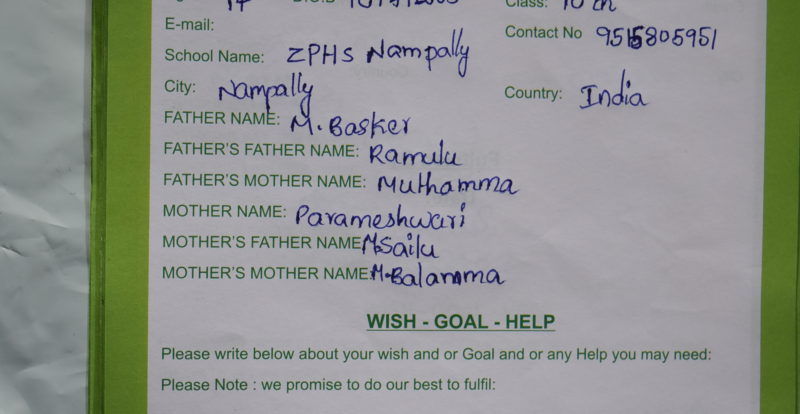 Class: 10th
E-mail:
Contact No 9515805951
School Name: ZPHS Nampally
City: Nampally
Country: India
FATHER NAME: M. Basker
FATHER'S FATHER NAME: Ramulu
FATHER'S MOTHER NAME: Muthamma
MOTHER NAME: Parameshwari
MOTHER'S FATHER NAME M.Sailu
MOTHER'S MOTHER NAME M.Balamma
WISH - GOAL - HELP
Please write below about your wish and or Goal and or any Help you may need:
Please Note : we promise to do our best to fulfil: